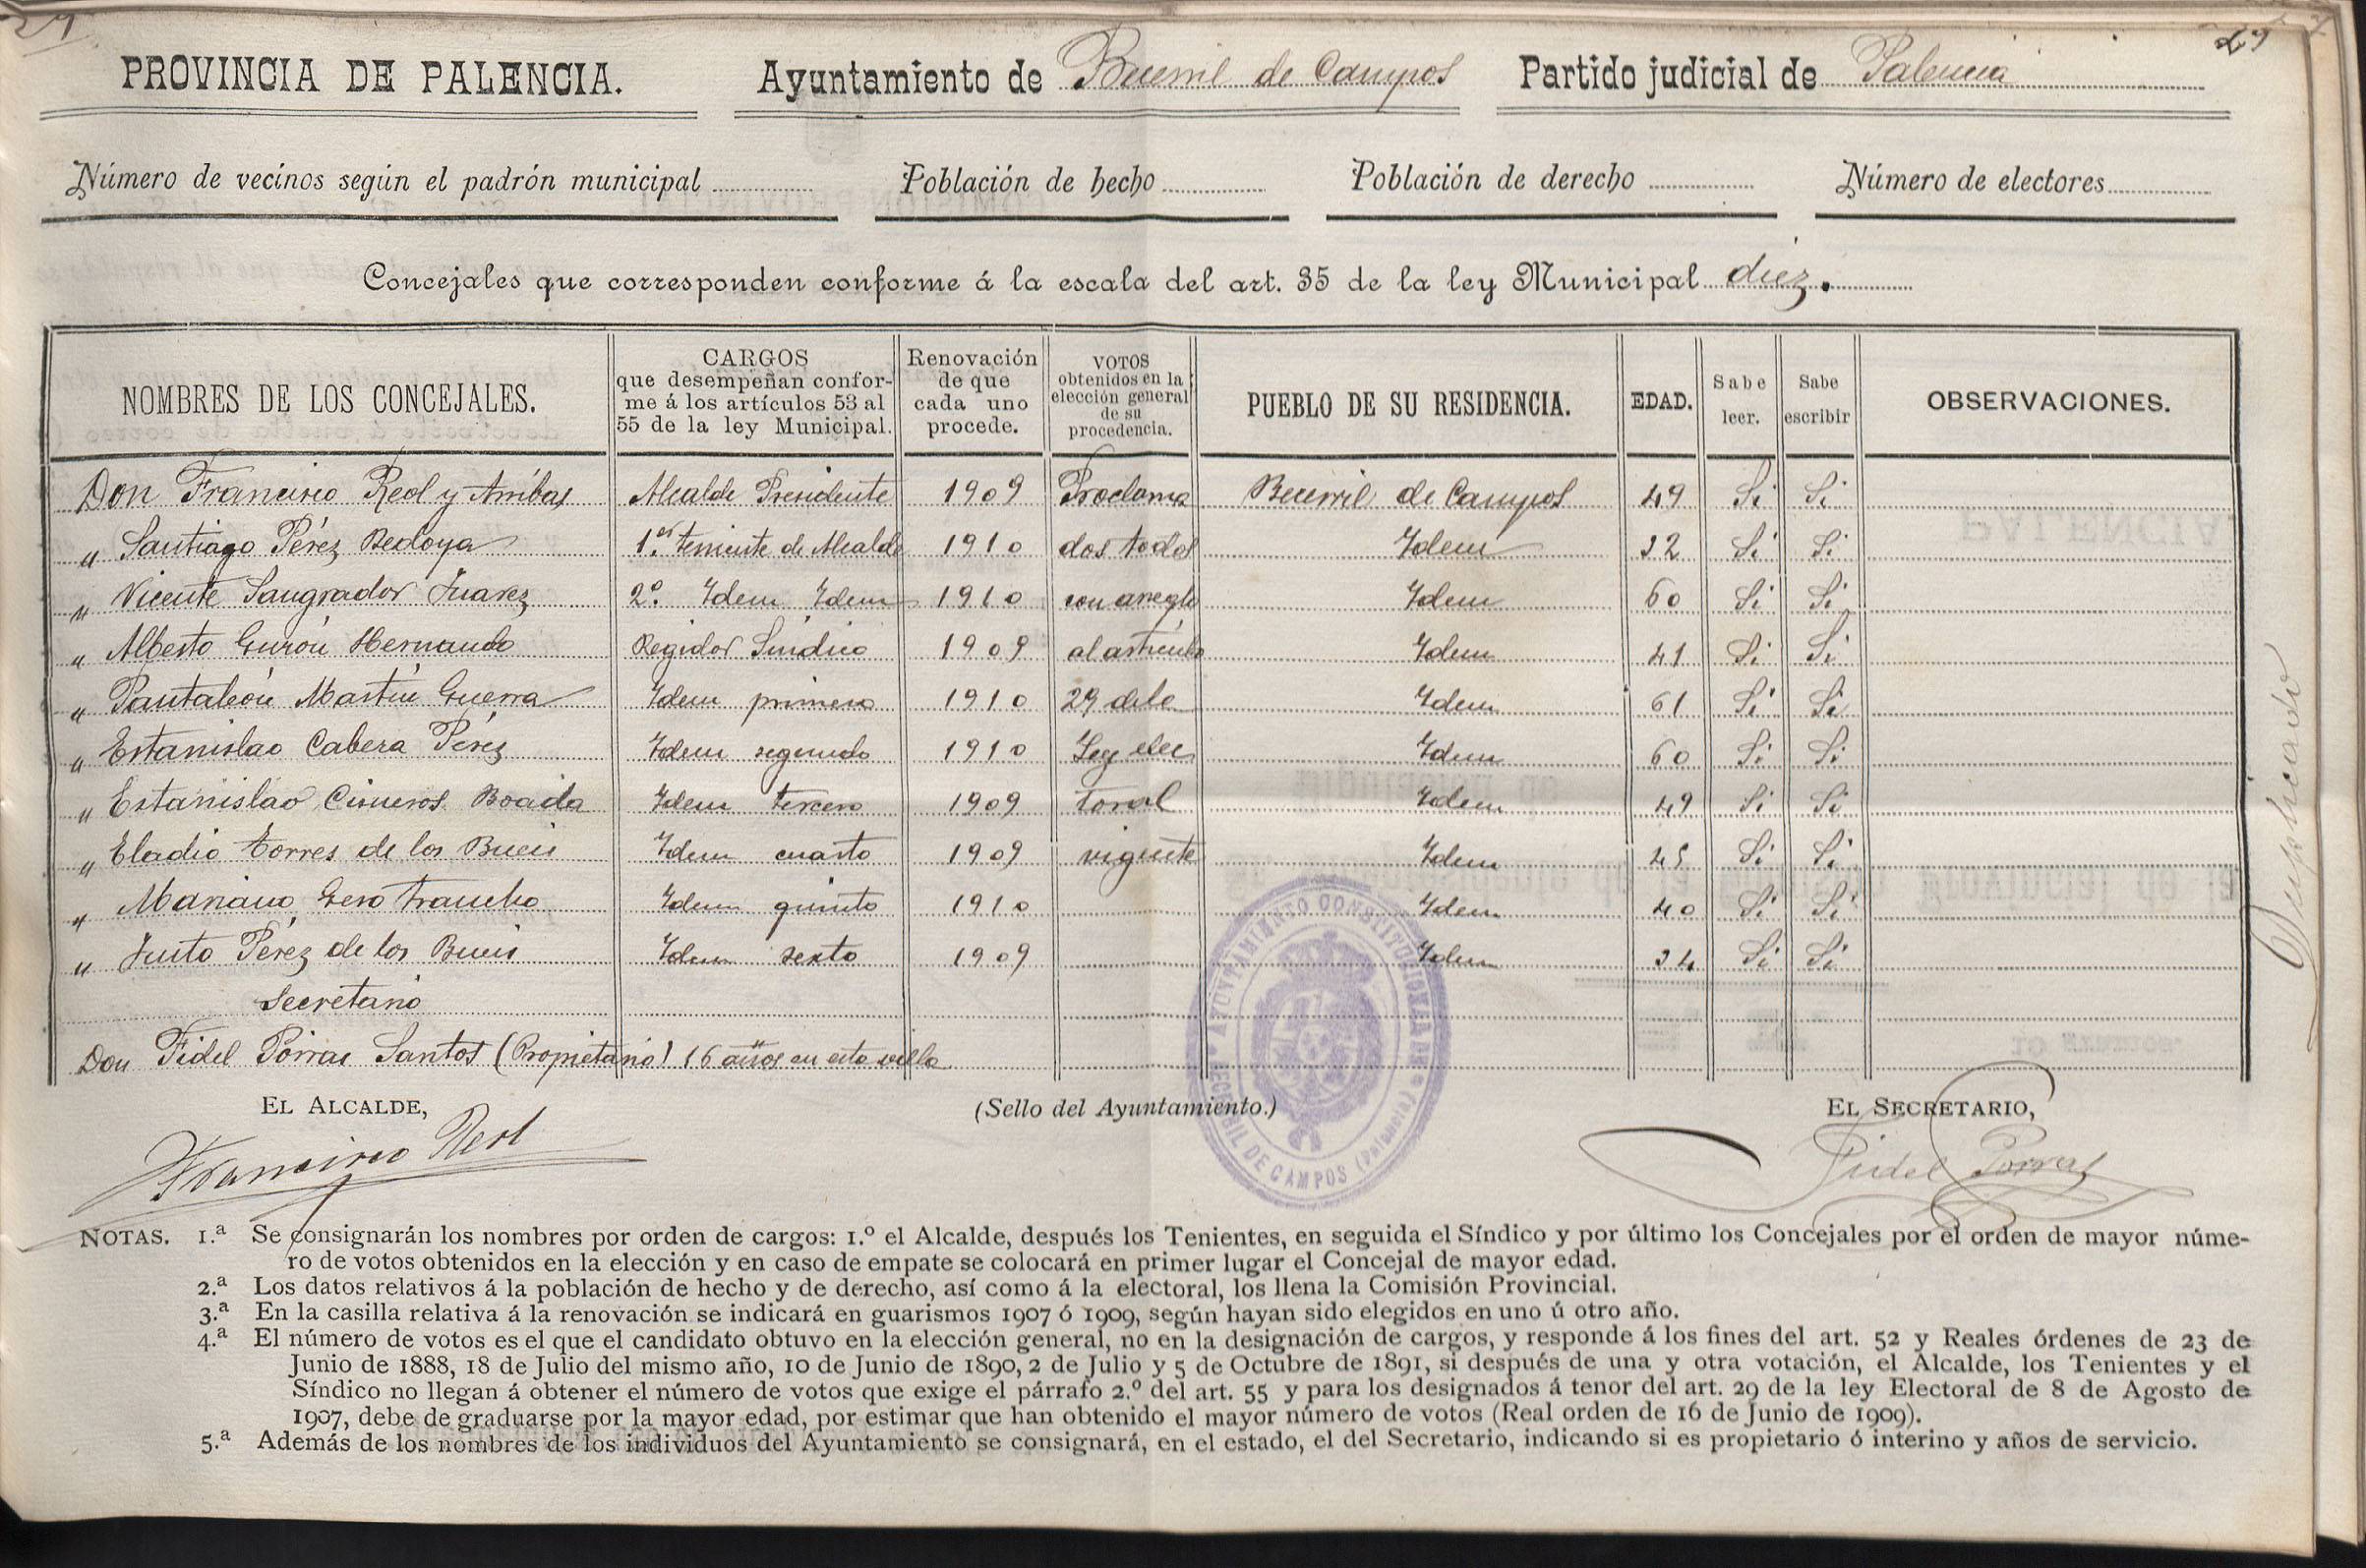 29
PROVINCIA DE PALENCIA. Ayuntamiento de Becerril de Campos Partido judicial de Palencia
Número de vecinos según el padrón municipal Población de hecho Población de derecho Número de electores
Concejales que corresponden conforme á la escala del art. 35 de la ley Municipal diez.
NOMBRES DE LOS CONCEJALES. CARGOS que desempeñan conforme á los artículos 53 al 55 de la ley Municipal. Renovación de que cada uno procede. VOTOS obtenidos en la elección general de su procedencia. PUEBLO DE SU RESIDENCIA. EDAD. Sabe leer. Sabe escribir OBSERVACIONES.
Don Francisco Reol y Arribas Alcalde Presidente 1909 Proclama Becerril de Campos 49 Si Si
" Santiago Pérez Bedoya 1.er teniente de Alcalde 1910 dos todos Idem 32 Si Si
" Vicente Sangrador Juarez 2.º Idem Idem 1910 con areglo Idem 60 Si Si
" Alberto Gurón Hernando Regidor Síndico 1909 al artículo Idem 41 Si Si
" Pantaleón Martín Guerra Idem primero 1910 29 de la Idem 61 Si Si
" Estanislao Cabera Pérez Idem segundo 1910 Ley elec Idem 60 Si Si
" Estanislao Cisneros Boada Idem tercero 1909 toral Idem 49 Si Si
" Eladio Torres de los Bueis Idem cuarto 1909 vigente Idem 45 Si Si
" Mariano Gero Francho Idem quinto 1910 Idem 40 Si Si
" Justo Pérez de los Bueis Idem sexto 1909 Idem 34 Si Si
Secretario
Don Fidel Porras Santos (Propietario) 16 años en esta villa
Duplicado
EL ALCALDE, (Sello del Ayuntamiento.) EL SECRETARIO,
Francisco Reol Fidel Porras
AYUNTAMIENTO CONSTITUCIONAL DE BECERRIL DE CAMPOS (Palencia)
NOTAS. 1.ª Se consignarán los nombres por orden de cargos: 1.º el Alcalde, después los Tenientes, en seguida el Síndico y por último los Concejales por el orden de mayor núme-
ro de votos obtenidos en la elección y en caso de empate se colocará en primer lugar el Concejal de mayor edad.
2.ª Los datos relativos á la población de hecho y de derecho, así como á la electoral, los llena la Comisión Provincial.
3.ª En la casilla relativa á la renovación se indicará en guarismos 1907 ó 1909, según hayan sido elegidos en uno ú otro año.
4.ª El número de votos es el que el candidato obtuvo en la elección general, no en la designación de cargos, y responde á los fines del art. 52 y Reales órdenes de 23 de
Junio de 1888, 18 de Julio del mismo año, 10 de Junio de 1890, 2 de Julio y 5 de Octubre de 1891, si después de una y otra votación, el Alcalde, los Tenientes y el
Síndico no llegan á obtener el número de votos que exige el párrafo 2.º del art. 55 y para los designados á tenor del art. 29 de la ley Electoral de 8 de Agosto de
1907, debe de graduarse por la mayor edad, por estimar que han obtenido el mayor número de votos (Real orden de 16 de Junio de 1909).
5.ª Además de los nombres de los individuos del Ayuntamiento se consignará, en el estado, el del Secretario, indicando si es propietario ó interino y años de servicio.